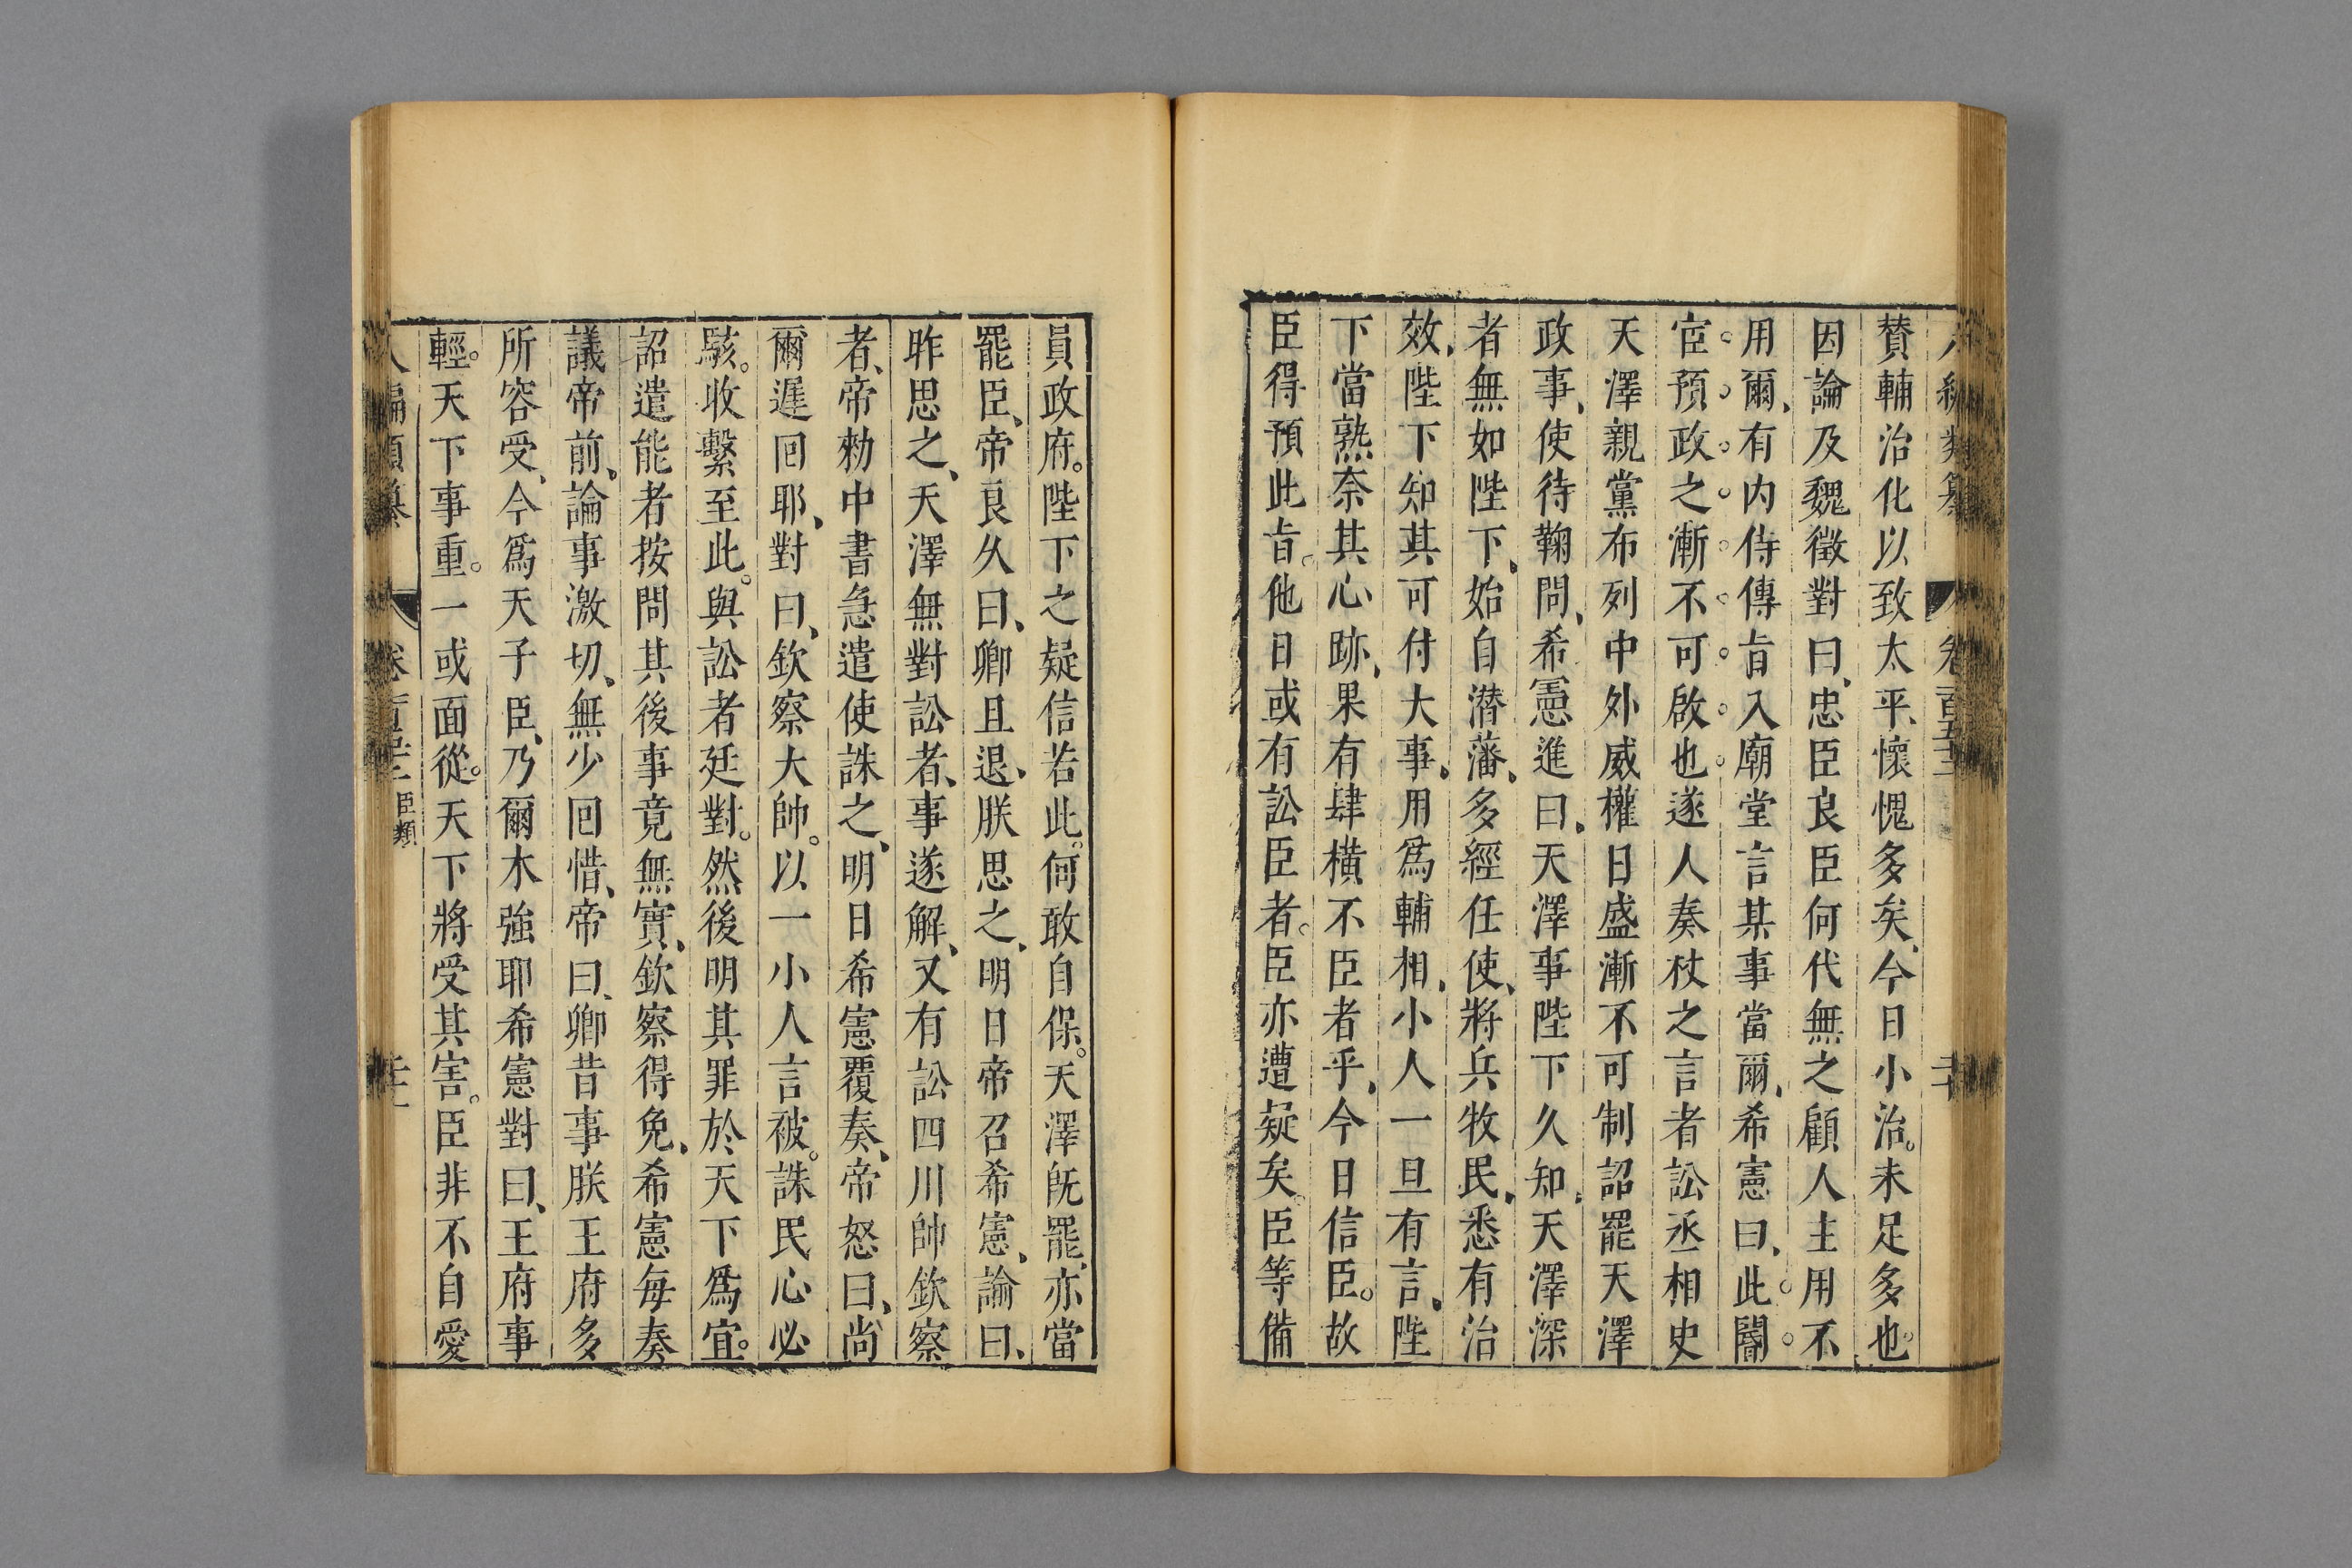 八編類纂 卷一百五十三 二十
贊輔治化以致太平、懷愧多矣、今日小治。未足多也。
因論及魏徵對曰、忠臣良臣何代無之顧人主用不
用爾、有内侍傳旨入廟堂言某事當爾、希憲曰、此閹
宦預政之漸不可啟也。遂人奏杖之言者訟丞相史
天澤親黨布列中外威權日盛漸不可制詔罷天澤
政事、使待鞠問、希憲進曰、天澤事陛下久知、天澤深
者無如陛下、始自潜藩、多經任使、將兵牧民、悉有治
效、陛下知其可付大事、用爲輔相、小人一旦有言、陛
下當熟奈其心跡、果有肆橫不臣者乎、今日信臣。故
臣得預此旨。他日或有訟臣者。臣亦遭疑矣。臣等備
員政府。陛下之疑信若此。何敢自保。天澤旣罷、亦當
罷臣、帝良久曰、卿且退、朕思之、明日帝召希憲、論曰、
昨思之、天澤無對訟者、事遂解、又有訟四川帥欽察
者、帝勑中書急遣使誅之、明日希憲覆奏、帝怒曰、尚
爾遲囘耶、對曰、欽察大帥。以一小人言被。誅民心必
駭。收繫至此。與訟者廷對。然後明其罪於天下爲宜。
詔遣能者按問其後事竟無實、欽察得免、希憲每奏
議帝前、論事激切、無少囘惜、帝曰、卿昔事朕王府多
所容受、今爲天子臣、乃爾木強耶希憲對曰、王府事
輕。天下事重。一或面從。天下將受其害。臣非不自愛
八編類纂 卷一百五十三 臣類 二十一